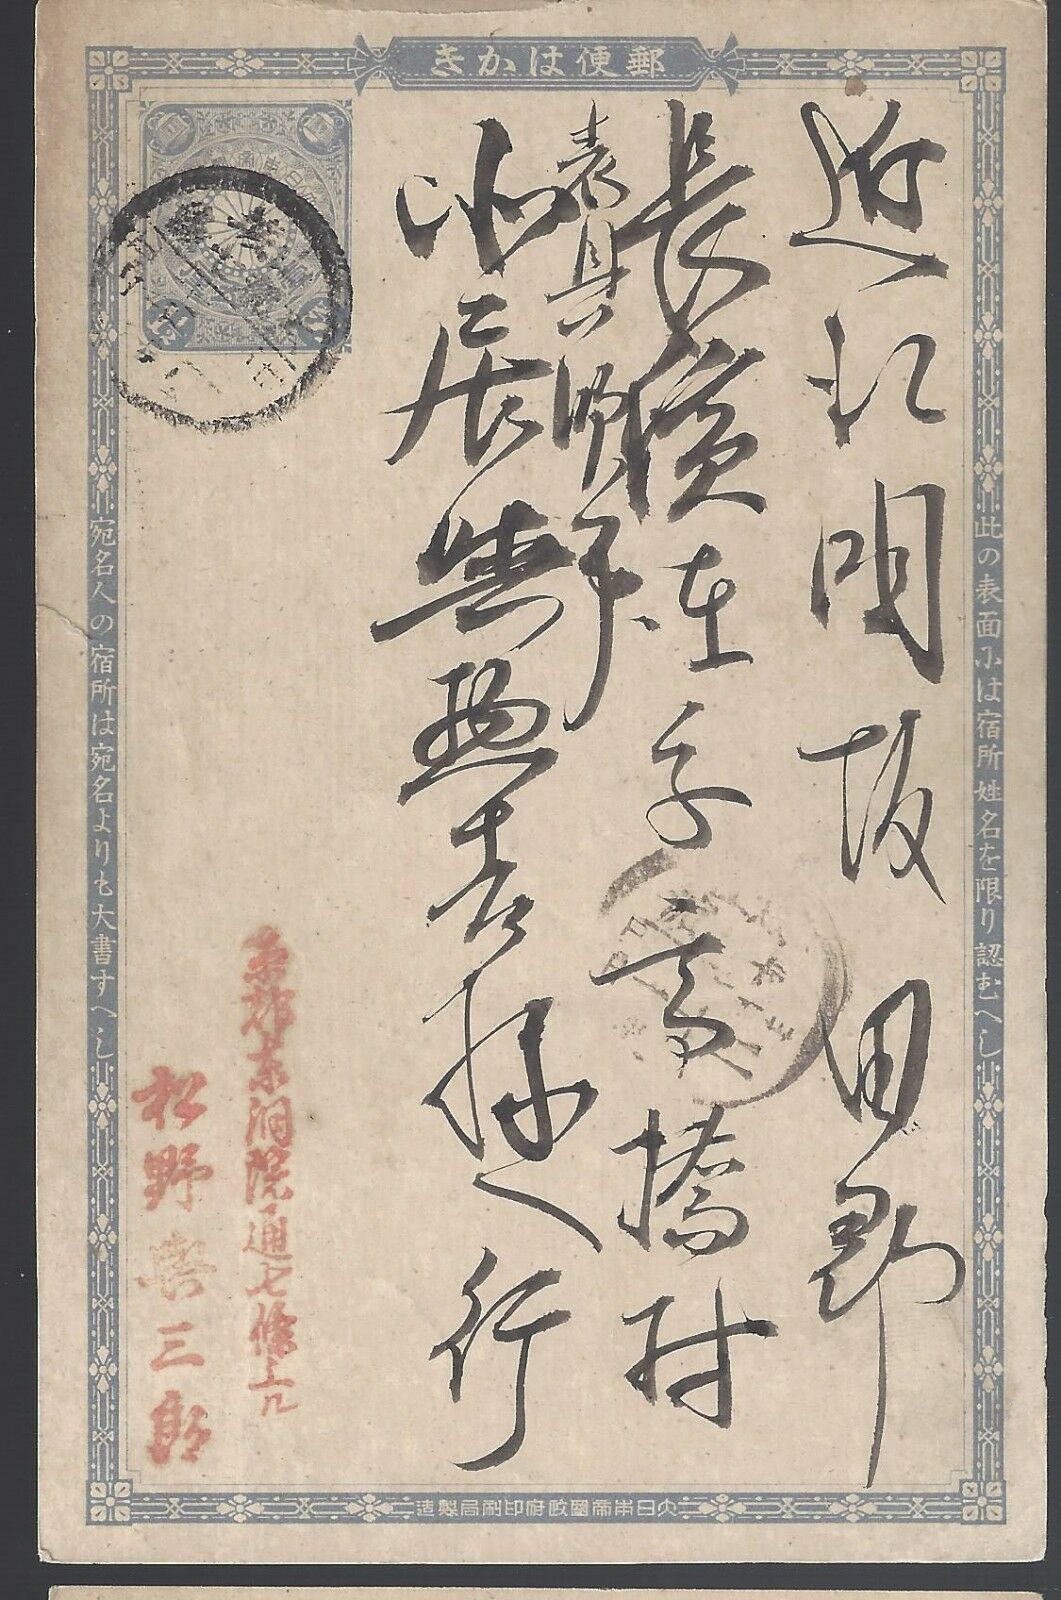 郵便はかき
此の表面には宿所姓名を限り認むへし
近江国坂田郡
長濱在字高橋村
表具師
小居
吉
行
京都東洞院通七條上ル
松野喜三郎
宛名人の宿所は宛名よりも大書すへし
大日本帝國政府印刷局製造